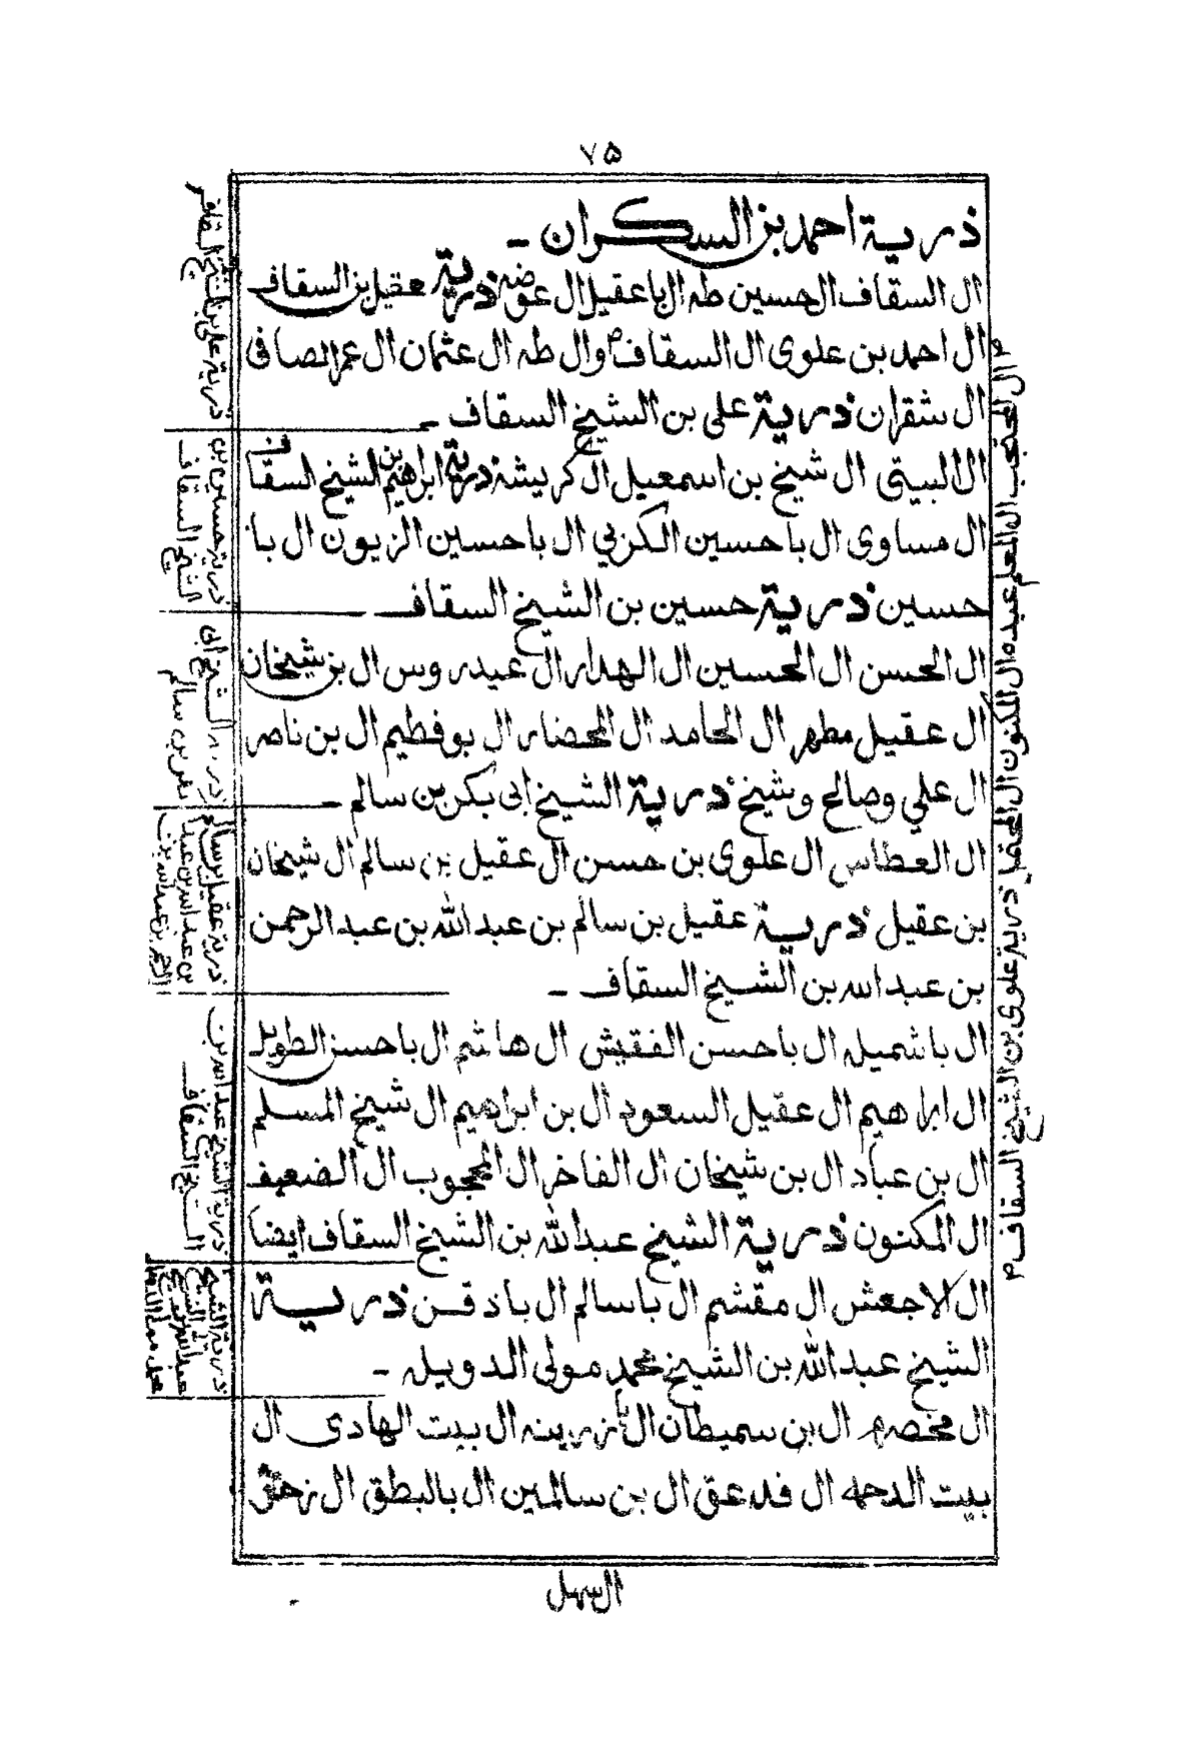 ٧٥
ذرية احمد بن السكران -
ال السقاف ال حسين طه ال باعقيل ال عوضه ذرية عقيل بن السقاف
ال احمد بن علوى ال السقاف وال طه ال عثمان ال عمر الصافى
ال شقران ذرية على بن الشيخ السقاف -
ال البيتى ال شيخ بن اسمعيل ال كريشه ذرية ابراهيم بن الشيخ السقاف
ال مساوى ال باحسين الكربي ال باحسين الزيون ال با
حسين ذرية حسين بن الشيخ السقاف
ال الحسن ال الحسين ال الهدار ال عيدروس ال بن شيخان
ال عقيل مطهر ال الحامد ال المحضار ال بوفطيم ال بن ناصر
ال علي وصالح وشيخ ذرية الشيخ ابى بكر بن سالم -
ال العطاس ال علوى بن حسن ال عقيل بن سالم ال شيخان
بن عقيل ذرية عقيل بن سالم بن عبدالله بن عبد الرحمن
بن عبدالله بن الشيخ السقاف -
ال باشميله ال باحسن الفقيش ال هاشم ال باحسن الطويل
ال ابراهيم ال عقيل السعود ال بن ابراهيم ال شيخ المسلم
ال بن عباد ال بن شيخان ال الفاخر ال المحجوب ال الضعيف
ال المكنون ذرية الشيخ عبدالله بن الشيخ السقاف ايضا
ال الاجعش ال مقشم ال باسالم ال باذقن ذرية
الشيخ عبدالله بن الشيخ محمد مولى الدويله -
ال مخصم ال بن سميطان ال بازرينه ال بيت الهادى ال
بيت الدحمه ال فدعق ال بن سالمين ال بالبطق ال
ال سهل
ال المحجب ال المعلم عبيده ال المكنون ال المحقن ذرية علوى بن الشيخ السقاف
ذرية على بن الشيخ السقاف
ذرية حسين بن
الشيخ السقاف
ذرية الشيخ ابى
بكر بن سالم
ذرية عقيل بن سالم
بن عبدالله بن عبد
الرحمن بن عبدالله بن
ذرية الشيخ عبدالله بن
الشيخ السقاف
ذرية الشيخ
عبدالله بن الشيخ
محمد مولى الدويله